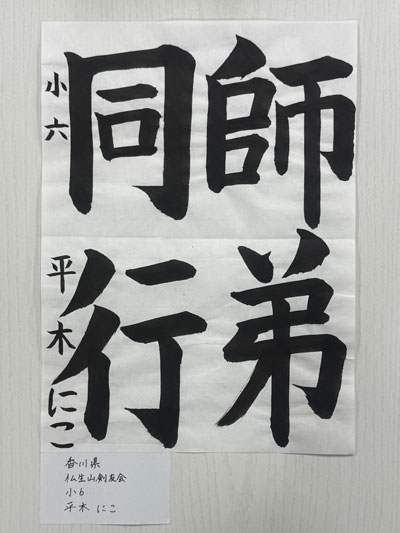 師弟
同行
小六 平木にこ
香川県
仏生山剣友会
小6
平木 にこ